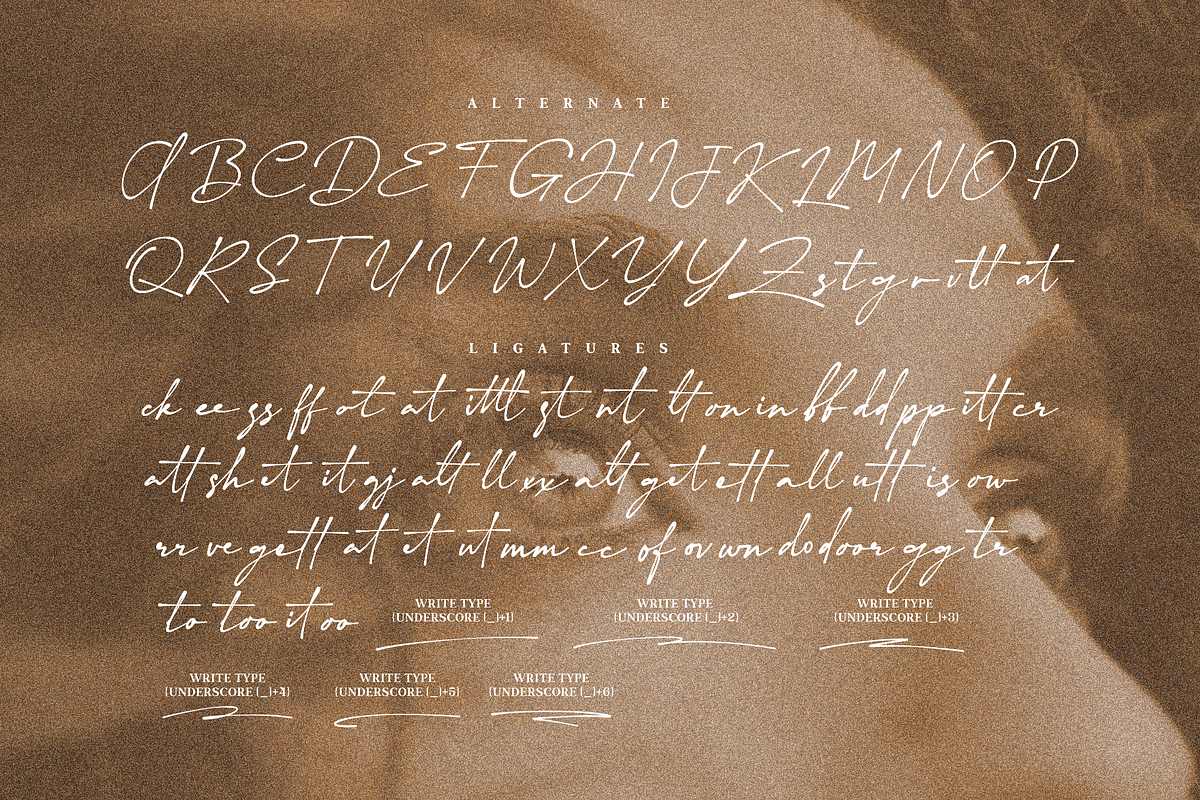 ALTERNATE
A B C D E F G H I J K L M N O P
Q R S T U V W X Y Y Z s t g r v tt at
LIGATURES
ck ee gs ff ot at ittl gt nt lt on in bb dd pp itt cr
att sh et it gj alt ll xx alt get ett all utt is ow
rr ve gett at et ut mm cc of ov wn do door gg tr
to too it oo
WRITE TYPE
(UNDERSCORE (_)+1)
WRITE TYPE
(UNDERSCORE (_)+2)
WRITE TYPE
(UNDERSCORE (_)+3)
WRITE TYPE
(UNDERSCORE (_)+4)
WRITE TYPE
(UNDERSCORE (_)+5)
WRITE TYPE
(UNDERSCORE (_)+6)